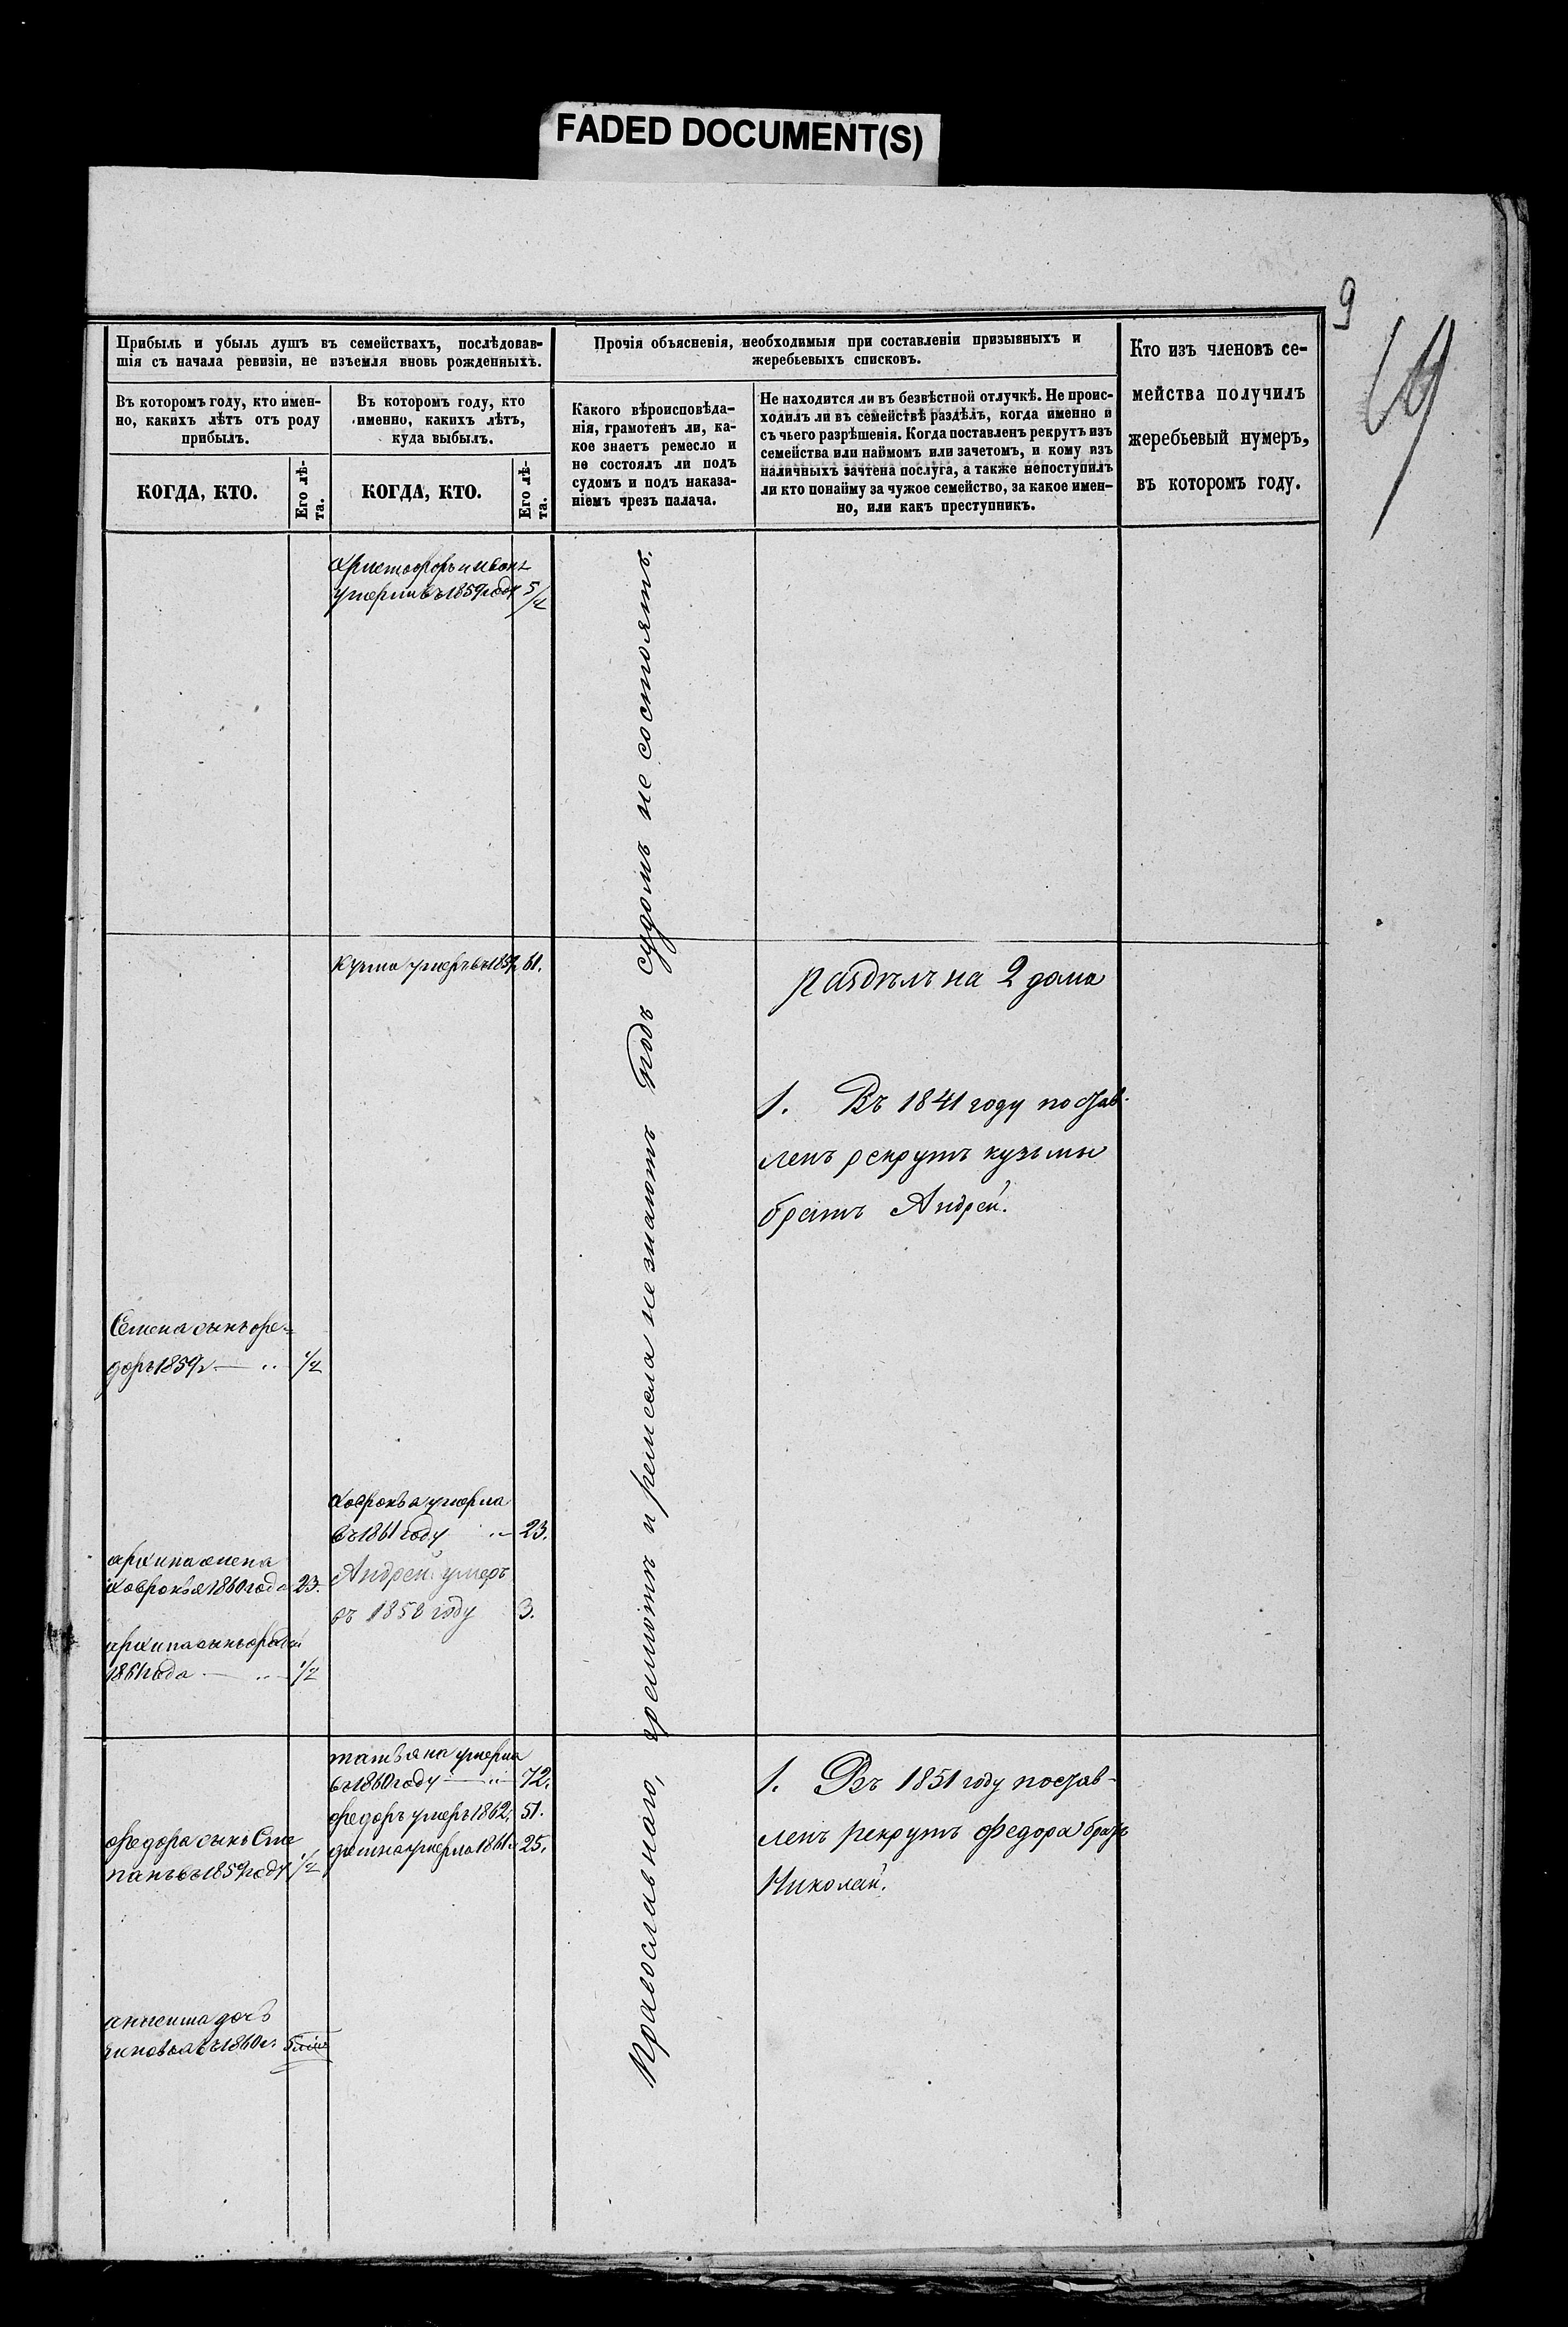 FADED DOCUMENT(S)
9
19
Прибыль и убыль душъ въ семействахъ, послѣдовав-
шія съ начала ревизіи, не изъемля вновь рожденныхъ.
Въ которомъ году, кто имен-
но, какихъ лѣтъ отъ роду
прибылъ.
КОГДА, КТО.
Его лѣ-
та.
Въ которомъ году, кто
именно, какихъ лѣтъ,
куда выбылъ.
КОГДА, КТО.
Его лѣ-
та.
Прочія объясненія, необходимыя при составленіи призывныхъ и
жеребьевыхъ списковъ.
Какого вѣроисповѣда-
нія, грамотенъ ли, ка-
кое знаетъ ремесло и
не состоялъ ли подъ
судомъ и подъ наказа-
ніемъ чрезъ палача.
Не находится ли въ безвѣстной отлучкѣ. Не проис-
ходилъ ли въ семействѣ раздѣлъ, когда именно и
съ чьего разрѣшенія. Когда поставленъ рекрутъ изъ
семейства или наймомъ или зачетомъ, и кому изъ
наличныхъ зачтена послуга, а также непоступилъ
ли кто понайму за чужое семейство, за какое имен-
но, или какъ преступникъ.
Кто изъ членовъ се-
мейства получилъ
жеребьевый нумеръ,
въ которомъ году.
христофоръ и иванъ
умерли въ 1859 году 5/
Кузма умеръ въ 1859 61.
раздѣлъ на 2 дома
1. Въ 1841 году постав-
ленъ рекрутъ кузьмы
братъ Андрей.
Семена сынъ фе-
доръ 1859 г — .. 1/2
ховронья умерла
въ 1861 году .. 23.
архипа жена
ховронья 1860 года 23.
Андрей умеръ
въ 1858 году 3.
архипа сынъ
1861 года — .. 1/2
Православнаго, грамотъ и ремесла не знаютъ подъ судомъ не состоятъ.
татьяна умерла
въ 1860 году — .. 72.
федоръ умеръ 1862, 51.
умерла 1861 25.
федора сынъ Сте
панъ въ 1859 году 1/2
1. Въ 1851 году постав-
ленъ рекрутъ Федора братъ
Николай.
дочь
зиновья въ 1860 г.